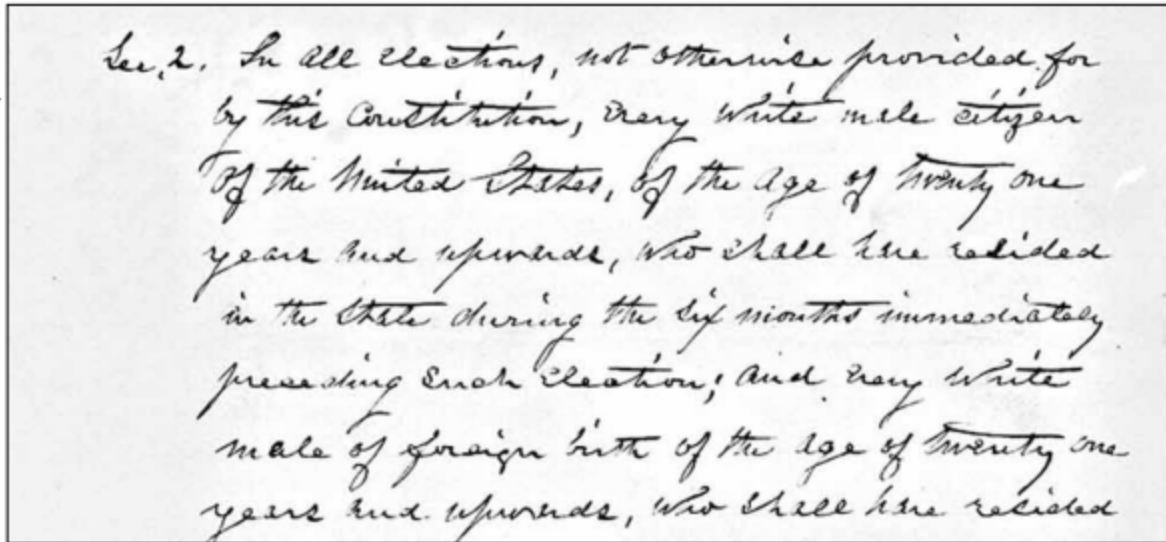 Sec. 2. In all elections, not otherwise provided for
by this Constitution, every white male citizen
of the United States, of the age of twenty one
years and upwards, who shall have resided
in the State during the six months immediately
preceding such election; and every white
male of foreign birth of the age of twenty one
years and upwards, who shall have resided